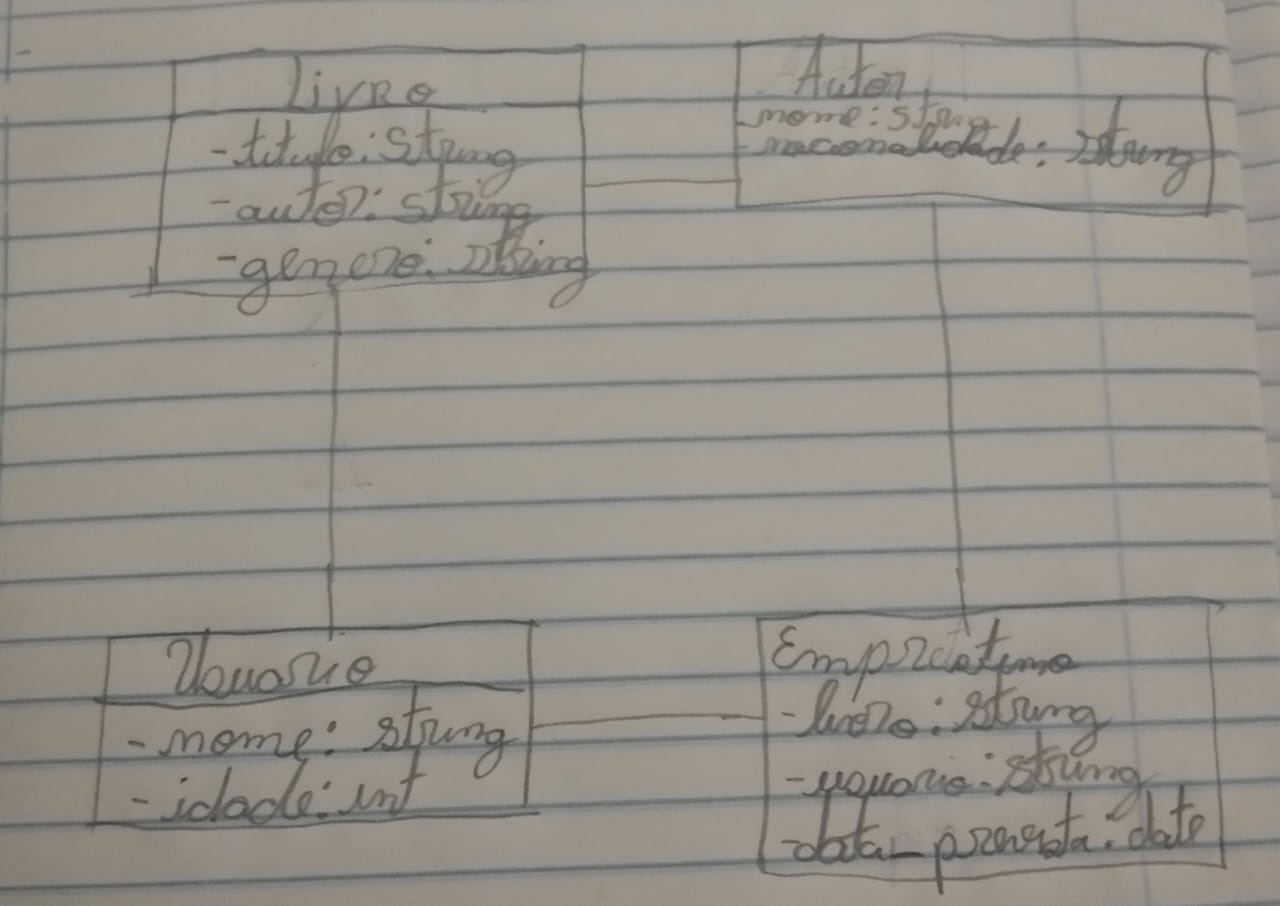 Livro
- titulo: string
- autor: string
- genero: string
Autor
nome: string
- nacionalidade: string
Usuario
- nome: string
- idade: int
- livro: string
- usuario: string
- data_prevista: date